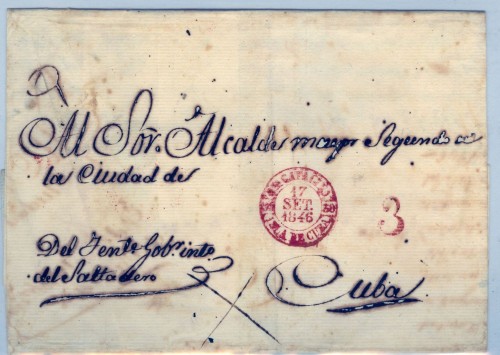 Al Sor. Alcalde mayor Segundo de
la Ciudad de
17
SET.
1846
3
Del Tente. Gobor. into.
del Saltadero
Cuba